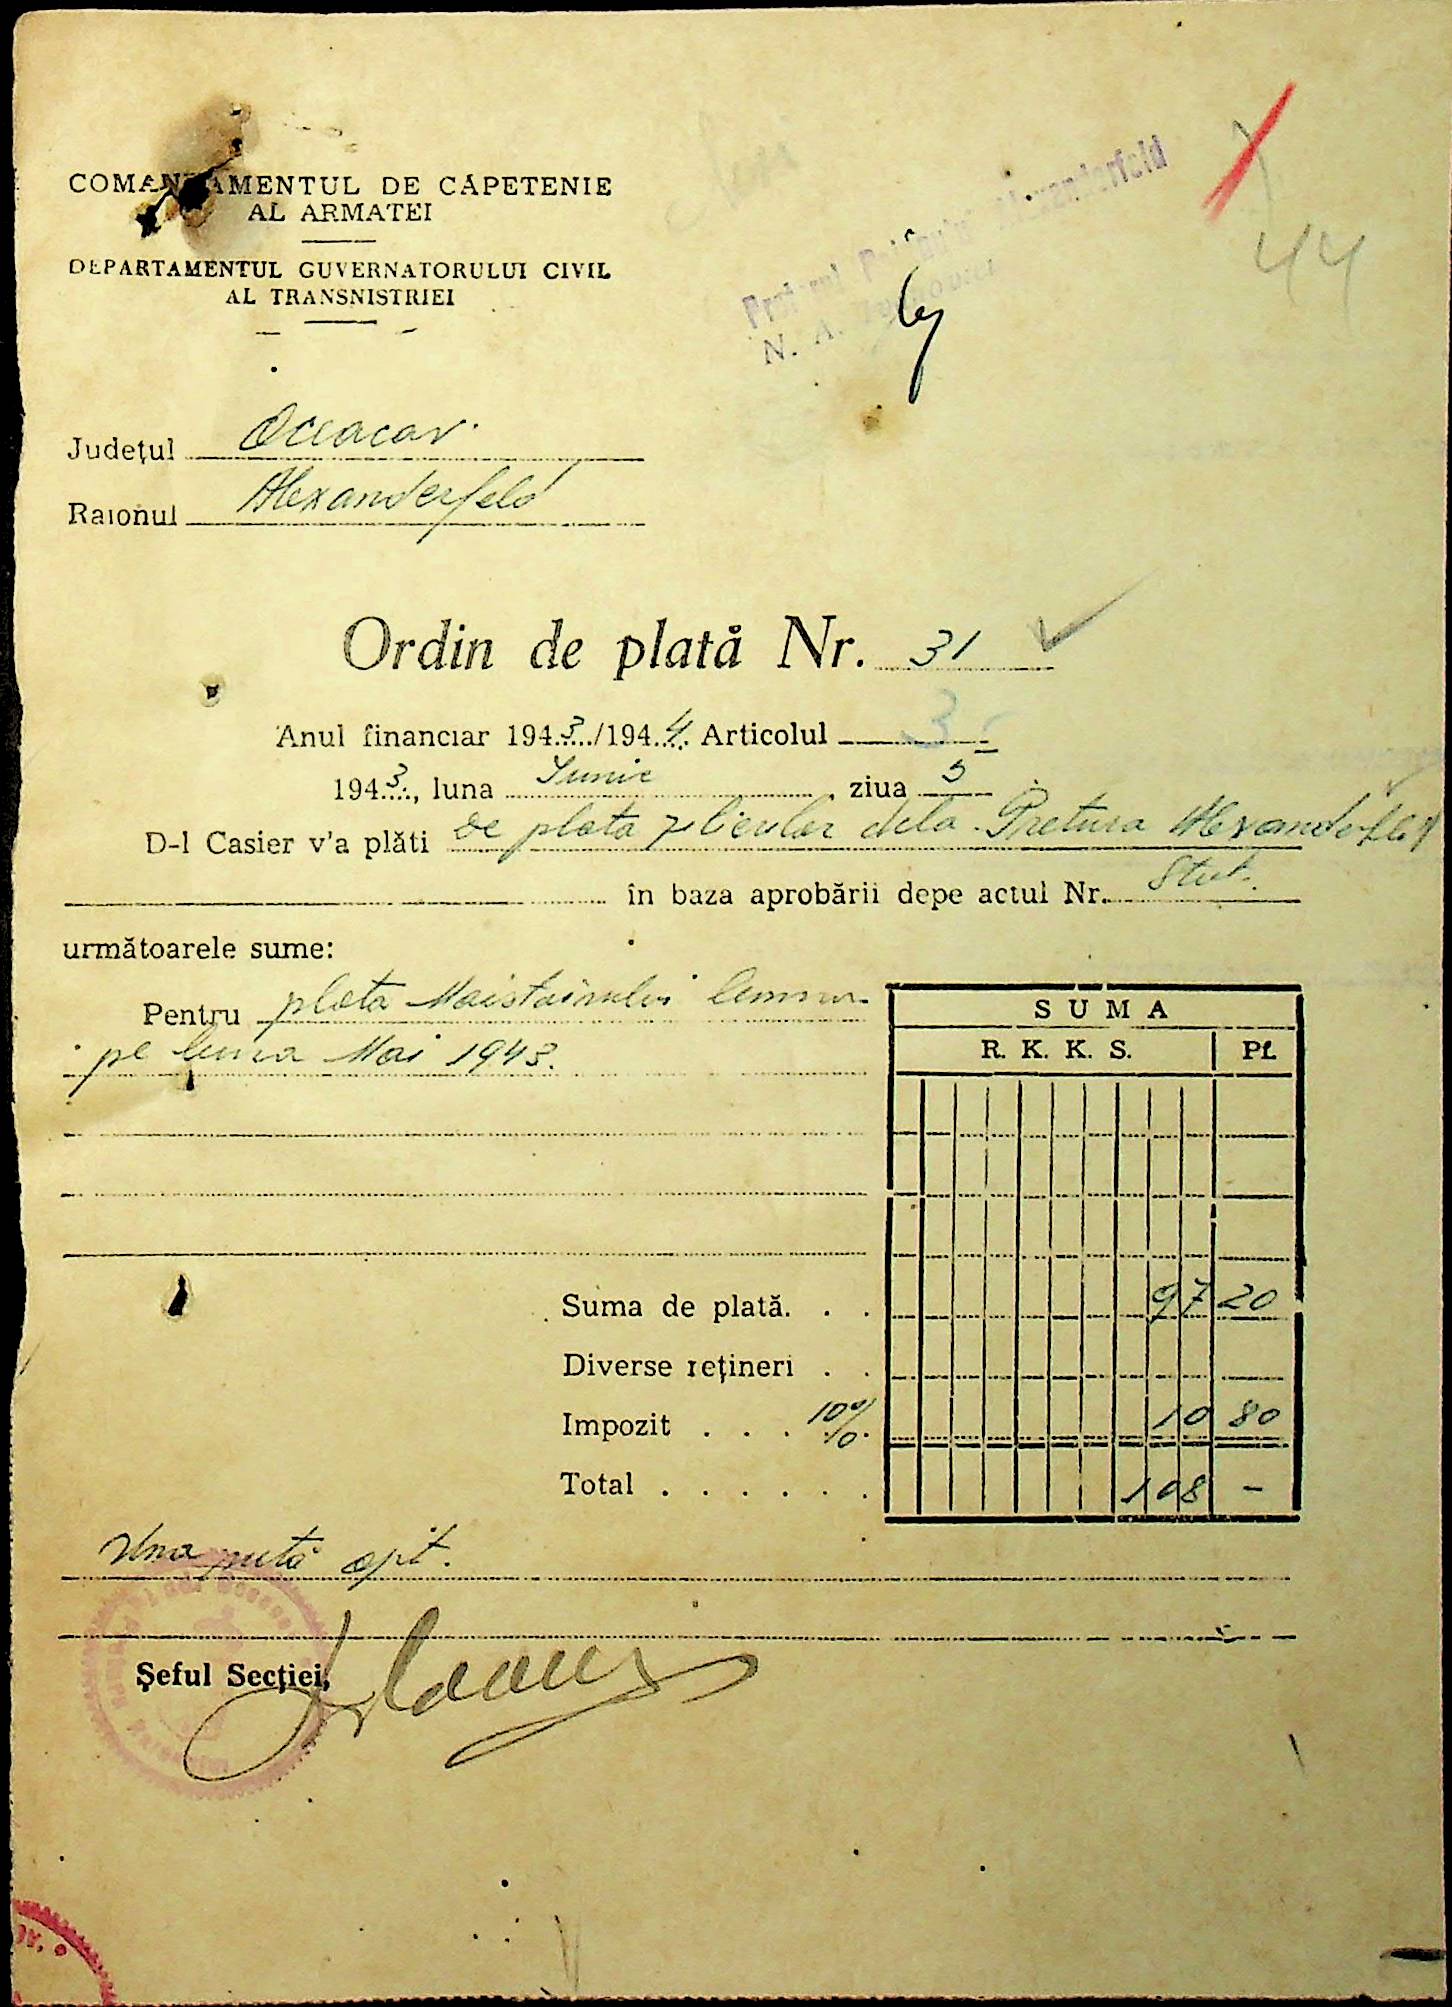 COMANDAMENTUL DE CAPETENIE
AL ARMATEI
DEPARTAMENTUL GUVERNATORULUI CIVIL
AL TRANSNISTRIEI
Alexanderfeld
N. A.
44
Judeţul Oceacov
Raionul Alexanderfeld
Ordin de plată Nr. 31
Anul financiar 1943/1944 Articolul 3
1943, luna Iunie ziua 5
D-l Casier v'a plăti de plata zilierilor dela Pretura Alexanderfeld
în baza aprobării depe actul Nr. Stat.
următoarele sume:
Pentru plata Maistorului
pe luna Mai 1943.
SUMA
R. K. K. S. Pf.
Suma de plată. . . 97 20
Diverse reţineri . .
Impozit . . . 10% 10 80
Total . . . . . . 108 -
Una sută opt.
Şeful Secţiei,